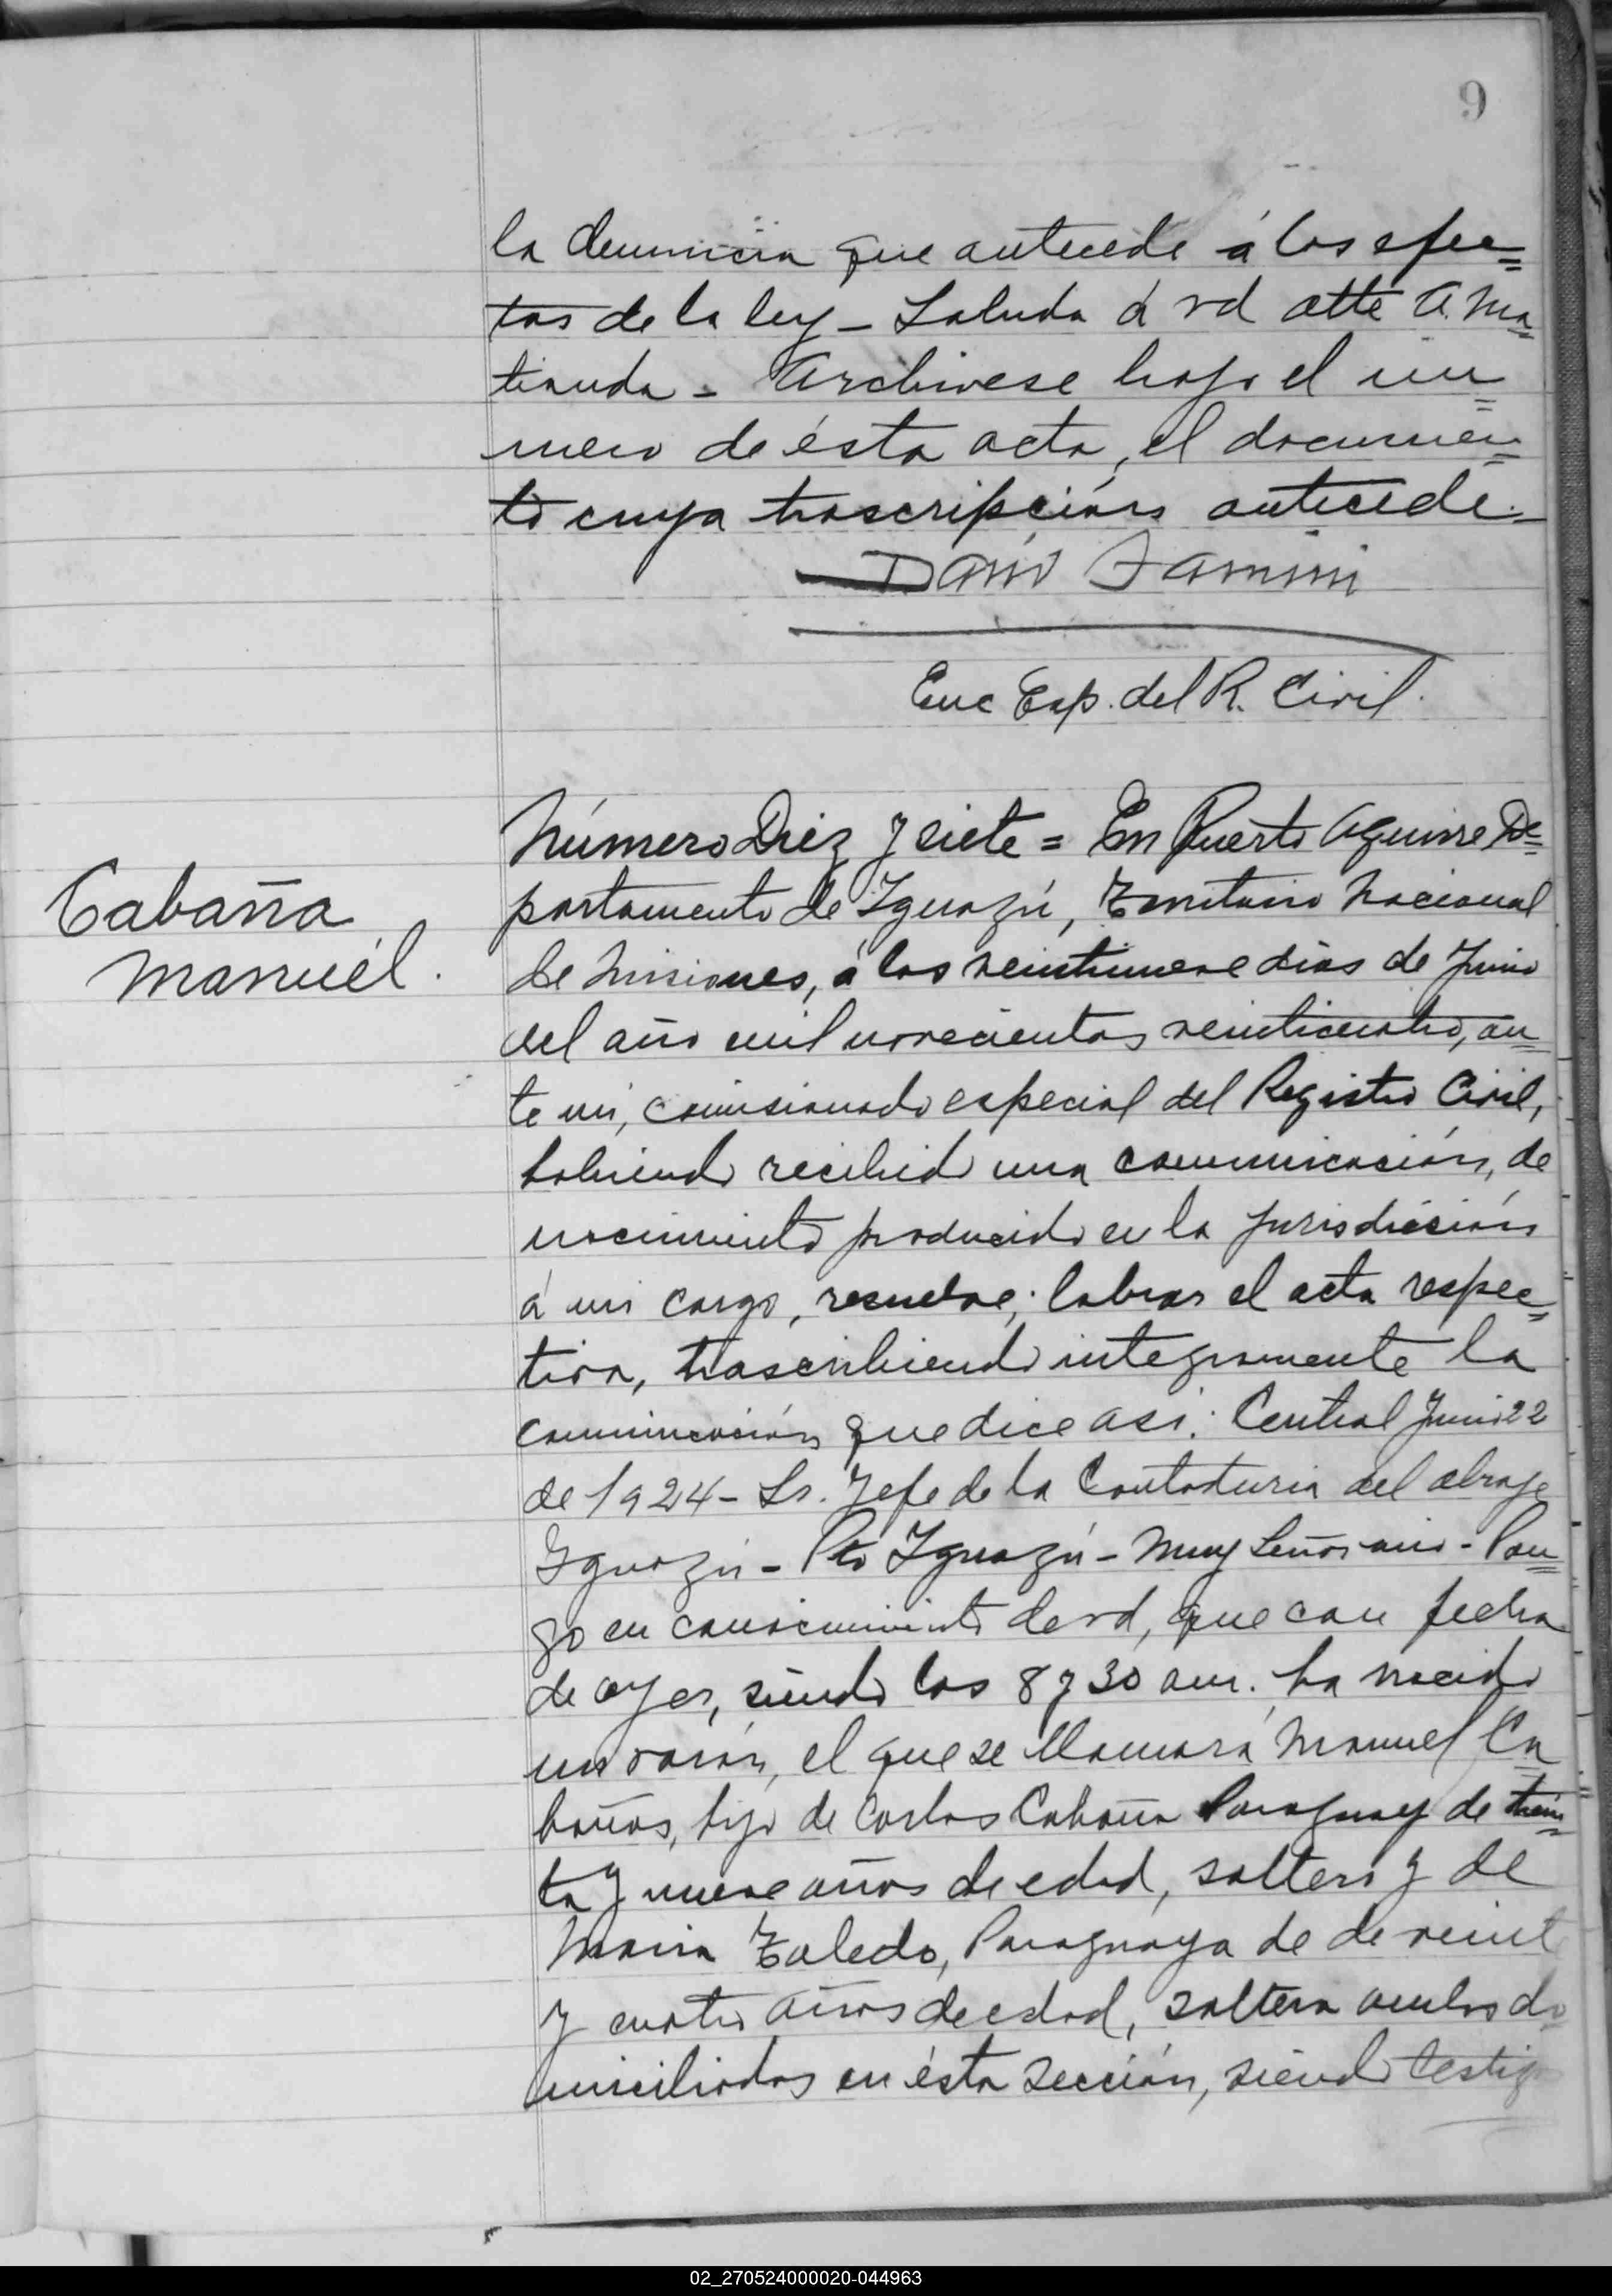 9
la denuncia que antecede á los efec=
tos de la ley - Saluda á vd atte A. Ma=
tianda - Archivese bajo el nú=
mero de ésta acta, el documen=
to cuya trascripción antecede.-
Dario
Enc Esp. del R. Civil.
Cabaña
Manuél.
Número Diez y siete = En Puerto Aguirre De=
partamento de Iguazú, Territorio Nacional
de Misiones, á los veintinueve dias de Junio
del año mil novecientos veinticuatro, an=
te mi, comisionado especial del Registro Civil,
habiendo recibido una comunicación, de
nacimiento producido en la jurisdicción
á mi cargo, resuelvo; labrar el acta respec=
tiva, trascribiendo integramente la
comunicación que dice asi: Central Junio 22
de 1924- Sr. Jefe de la Contaduria del obraje
Iguazú - Pto Iguazú - Muy Señor mio - Pon=
go en conocimiento de vd, que con fecha
de ayer, siendo las 8 y 30 am. ha nacido
un varón, el que se llamará Manuel Ca=
bañas, hijo de Carlos Cabaña Paraguay de trein=
ta y nueve años de edad, soltero y de
Maria Toledo, Paraguaya de de veint
y cuatro años de edad, soltera ambos do=
miciliados en ésta sección, siendo testig
02_270524000020-044963